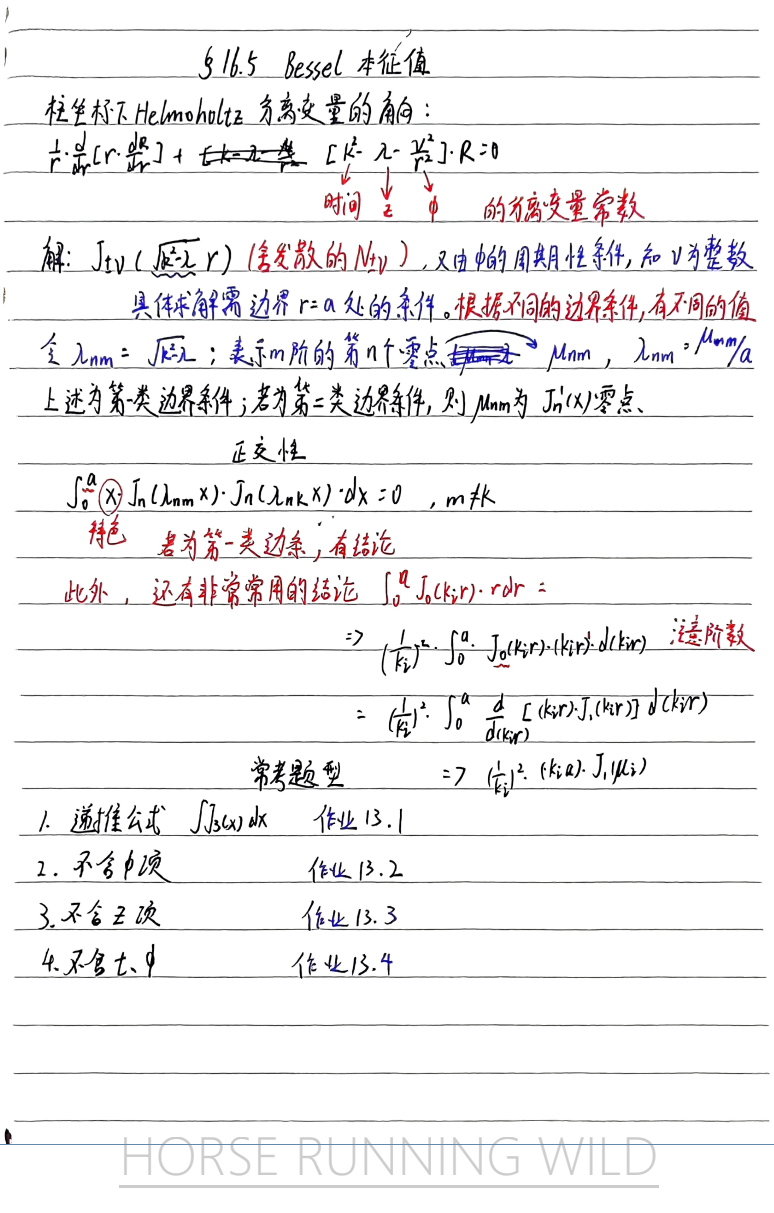 §16.5 Bessel 本征值
柱坐标下 Helmoholtz 分离变量的角向：
1/r · d/dr [r · dR/dr] + [k² - λ - ν²/r²] · R = 0
时间 z φ 的分离变量常数
解： J±ν (√(k²-λ) r) (含发散的 N±ν)，又由φ的周期性条件，知 ν 为整数
具体求解需边界 r=a 处的条件。根据不同的边界条件，有不同的值
令 λnm = √(k²-λ) ; 表示m阶的第n个零点 μnm , λnm = μnm/a
上述为第一类边界条件；若为第二类边界条件，则 μnm为 Jn'(x)零点、
正交性
∫₀ᵃ x · Jn(λnm x) · Jn(λnk x) · dx = 0 , m≠k
特色 若为第一类边条，有结论
此外，还有非常常用的结论 ∫₀ᵃ J₀(kir) · rdr =
=> (1/ki)² · ∫₀ᵃ · J₀(kir) · (kir)¹ · d(kir) 注意阶数
= (1/ki)² · ∫₀ᵃ d/d(kir) [(kir) · J₁(kir)] d(kir)
常考题型 => (1/ki)² · (kia) · J₁(μi)
1. 递推公式 ∫J₃(x)dx 作业13.1
2. 不含φ项 作业13.2
3. 不含z项 作业13.3
4. 不含t、φ 作业13.4
HORSE RUNNING WILD